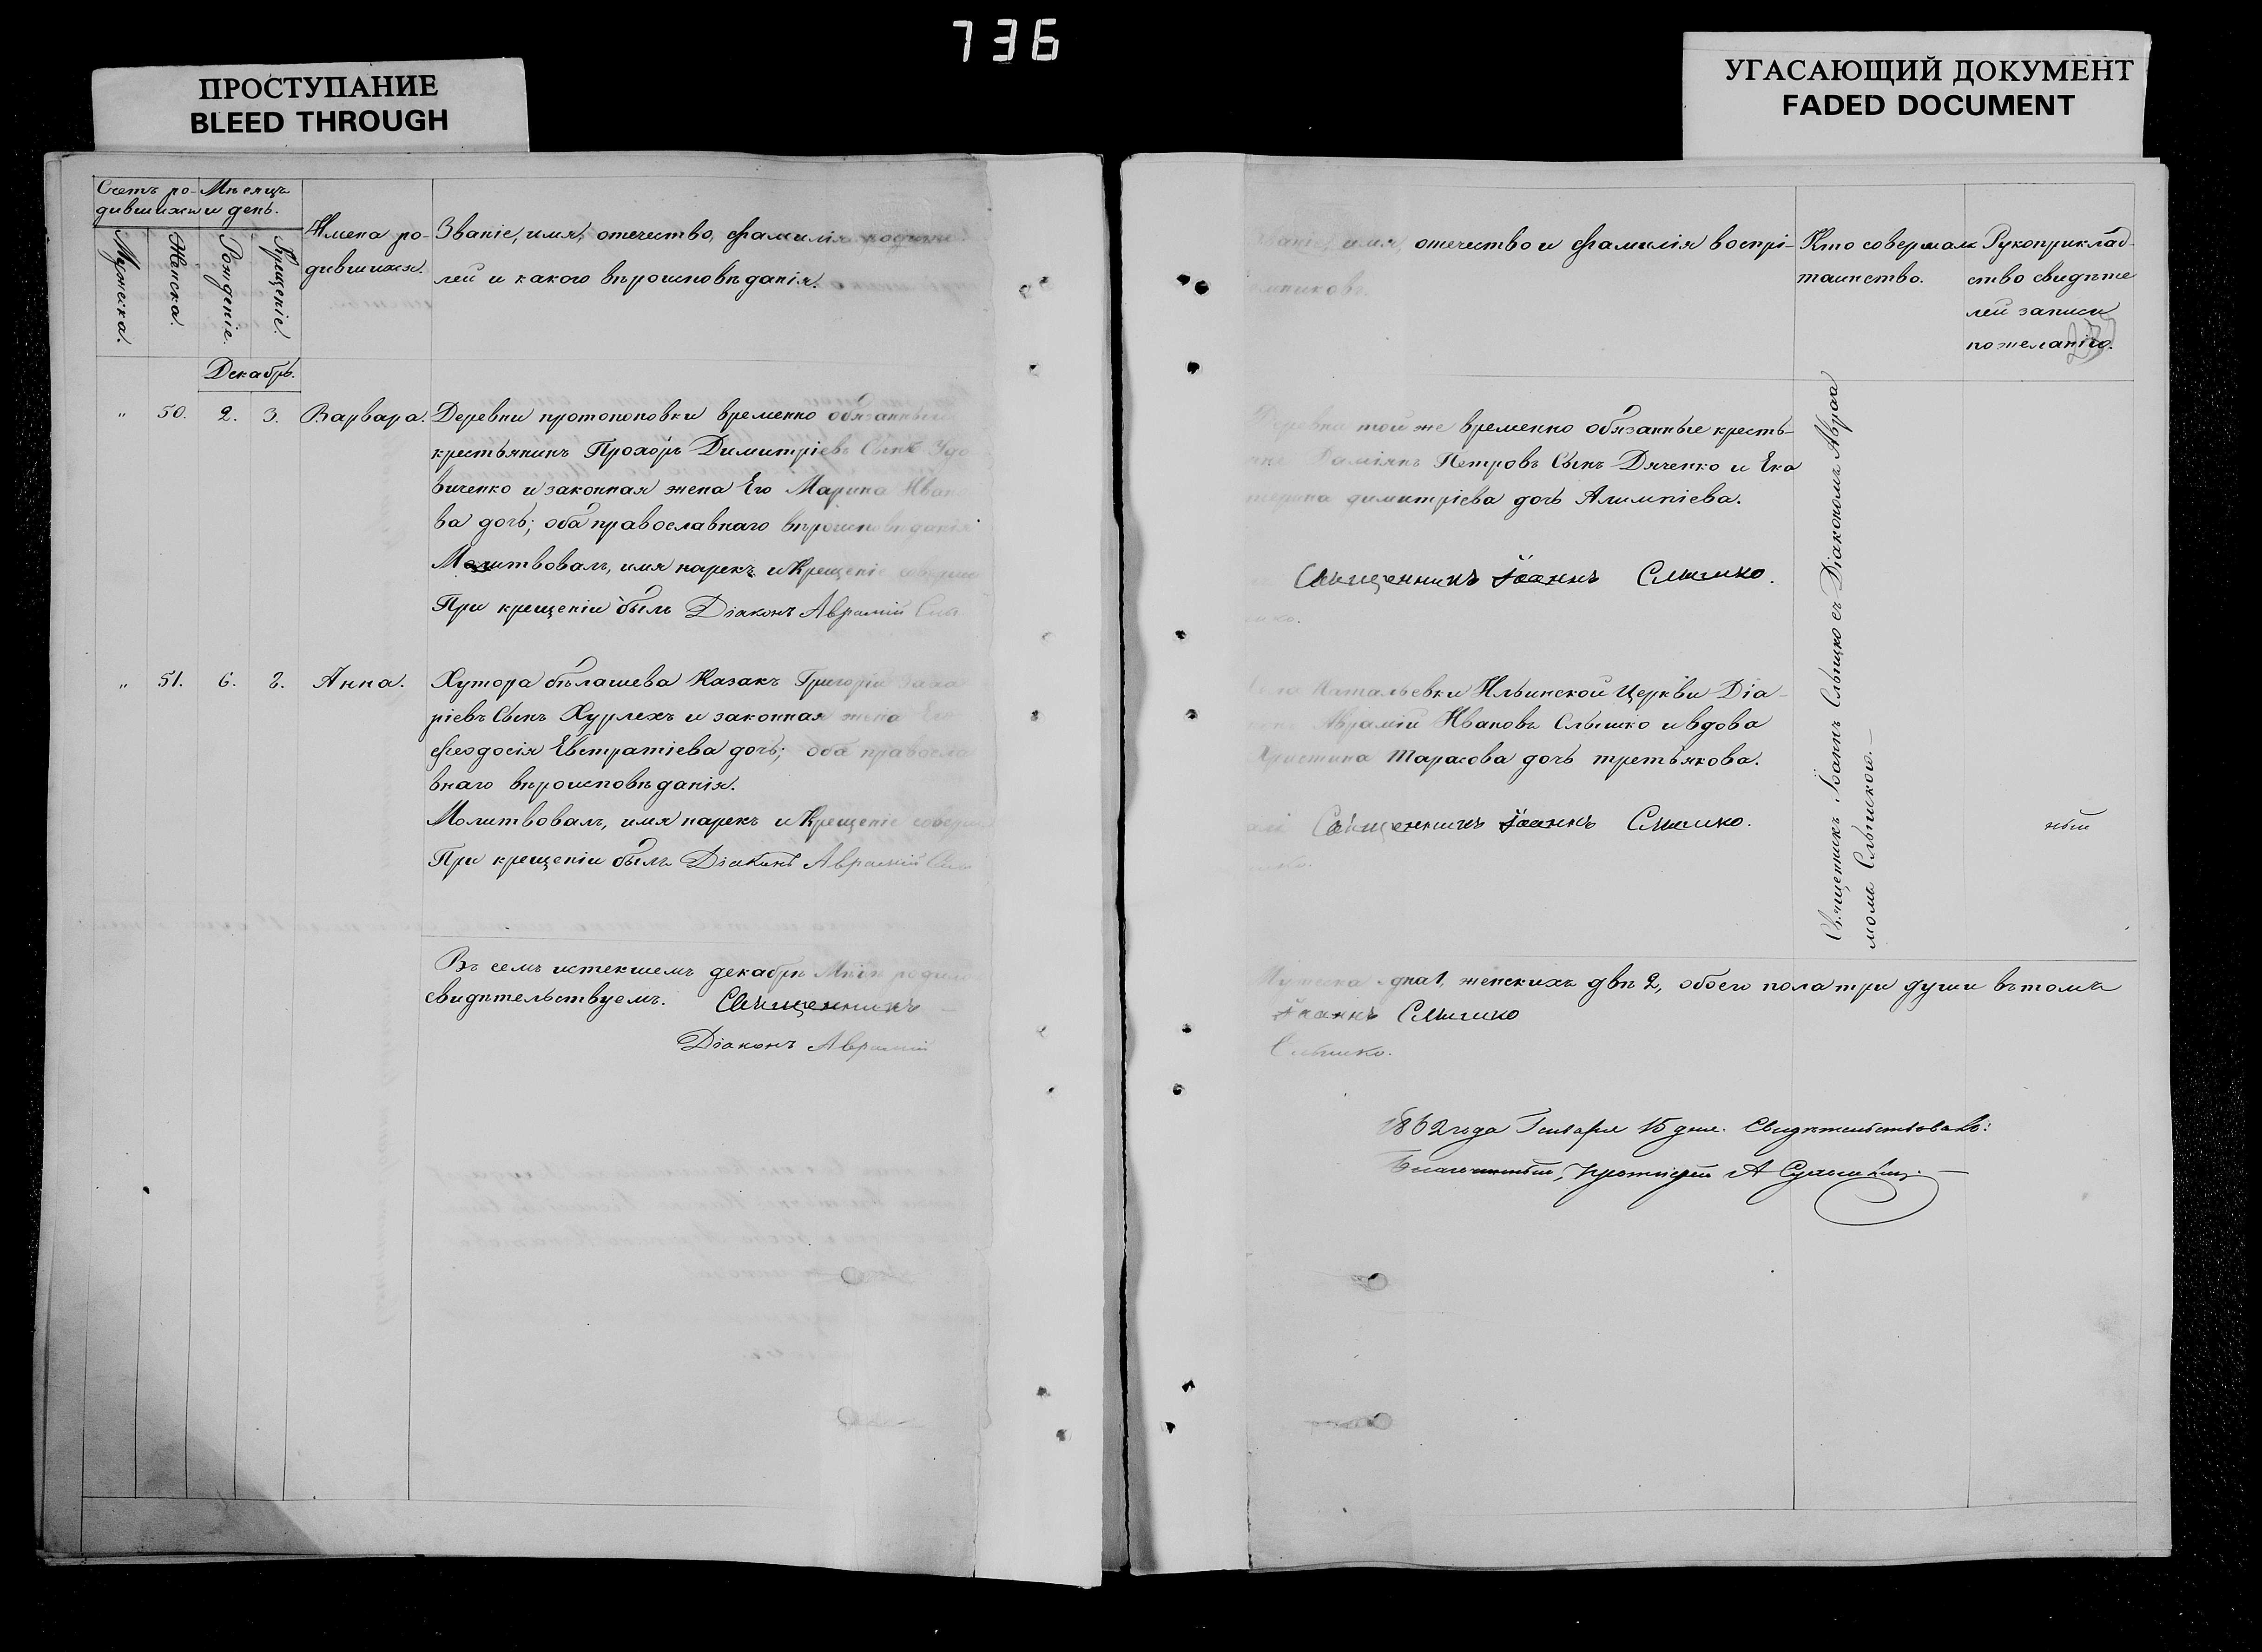 736
ПРОСТУПАНИЕ
BLEED THROUGH
УГАСАЮЩИЙ ДОКУМЕНТ
FADED DOCUMENT
Счетъ ро-
дившихся
Мѣсяцъ
и день.
Мужска.
Женска.
Рожденіе.
Крещеніе.
Имена ро-
дившихся.
Званіе, имя, отечество, фамилія родите
лей и какого вѣроисповѣданія.
Декабрь.
" 50. 2. 3. Варвара.
Деревни протопоповки временно обязанный
крестьянинъ Прохоръ Димитріевъ Сынъ Удо
виченко и законная жена Его Марина Ивано
ва дочь; оба православнаго вѣроисповѣданія
Молитвовалъ, имя нарекъ и Крещеніе соверши
При крещеніи былъ Діаконъ Аврамій Слы
" 51. 6. 8. Анна.
Хутора бѣлашева Казакъ Григорій Заха
ріевъ Сынъ Хурлехъ и законная жена Его
Феодосія Евстратіева дочь; оба правосла
внаго вѣроисповѣданія.
Молитвовалъ, имя нарекъ и Крещеніе соверши
При крещеніи былъ Діаконъ Аврамій Слы
Въ семъ истекшемъ декабрѣ Мцѣ родил
свидѣтельствуемъ. Священникъ
Діаконъ Аврамій
Званіе, имя, отечество и фамилія воспрі-
емниковъ.
Кто совершалъ
таинство.
Рукоприклад-
ство свидѣте
лей записи
по желанію.
Деревни той же временно обязанные кресть-
яне Даміянъ Петровъ Сынъ Дяченко и Ека
терина димитріева дочь Алимпіева.
Священникъ Іоаннъ Слышко.
шко.
Села Натальевки Ильинской Церкви Діа-
конъ Аврамій Ивановъ Слышко и вдова
Христина Тарасова дочь третьякова.
Священникъ Іоаннъ Слышко.
шко.
Священникъ Іоаннъ Слышко съ Діакономъ Авраа
момъ Слышкого.—
ный
Мужска одна 1, женскихъ двѣ 2, обоего пола три души въ томъ
Іоаннъ Слышко
Слышко.
1862 года Генваря 15 дня. Свидѣтельствовалъ:
Благочинный, протоіерей А